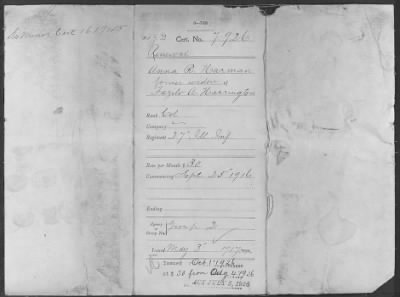 3-729
Cert. No. 7,926
Renewal
Anna R. Harman
former widow of
Fazilo A. Harrington
Rank Col
Company
Regiment 27" Ill Inf
Rate per Month $ 30
Commencing Sept. 25" 1916
Ending
Group 2
Issued May 3" 1917
Issued Oct. 1" 1926
@ $ 30 from Aug. 4, 1926
ACT JULY 3, 1926